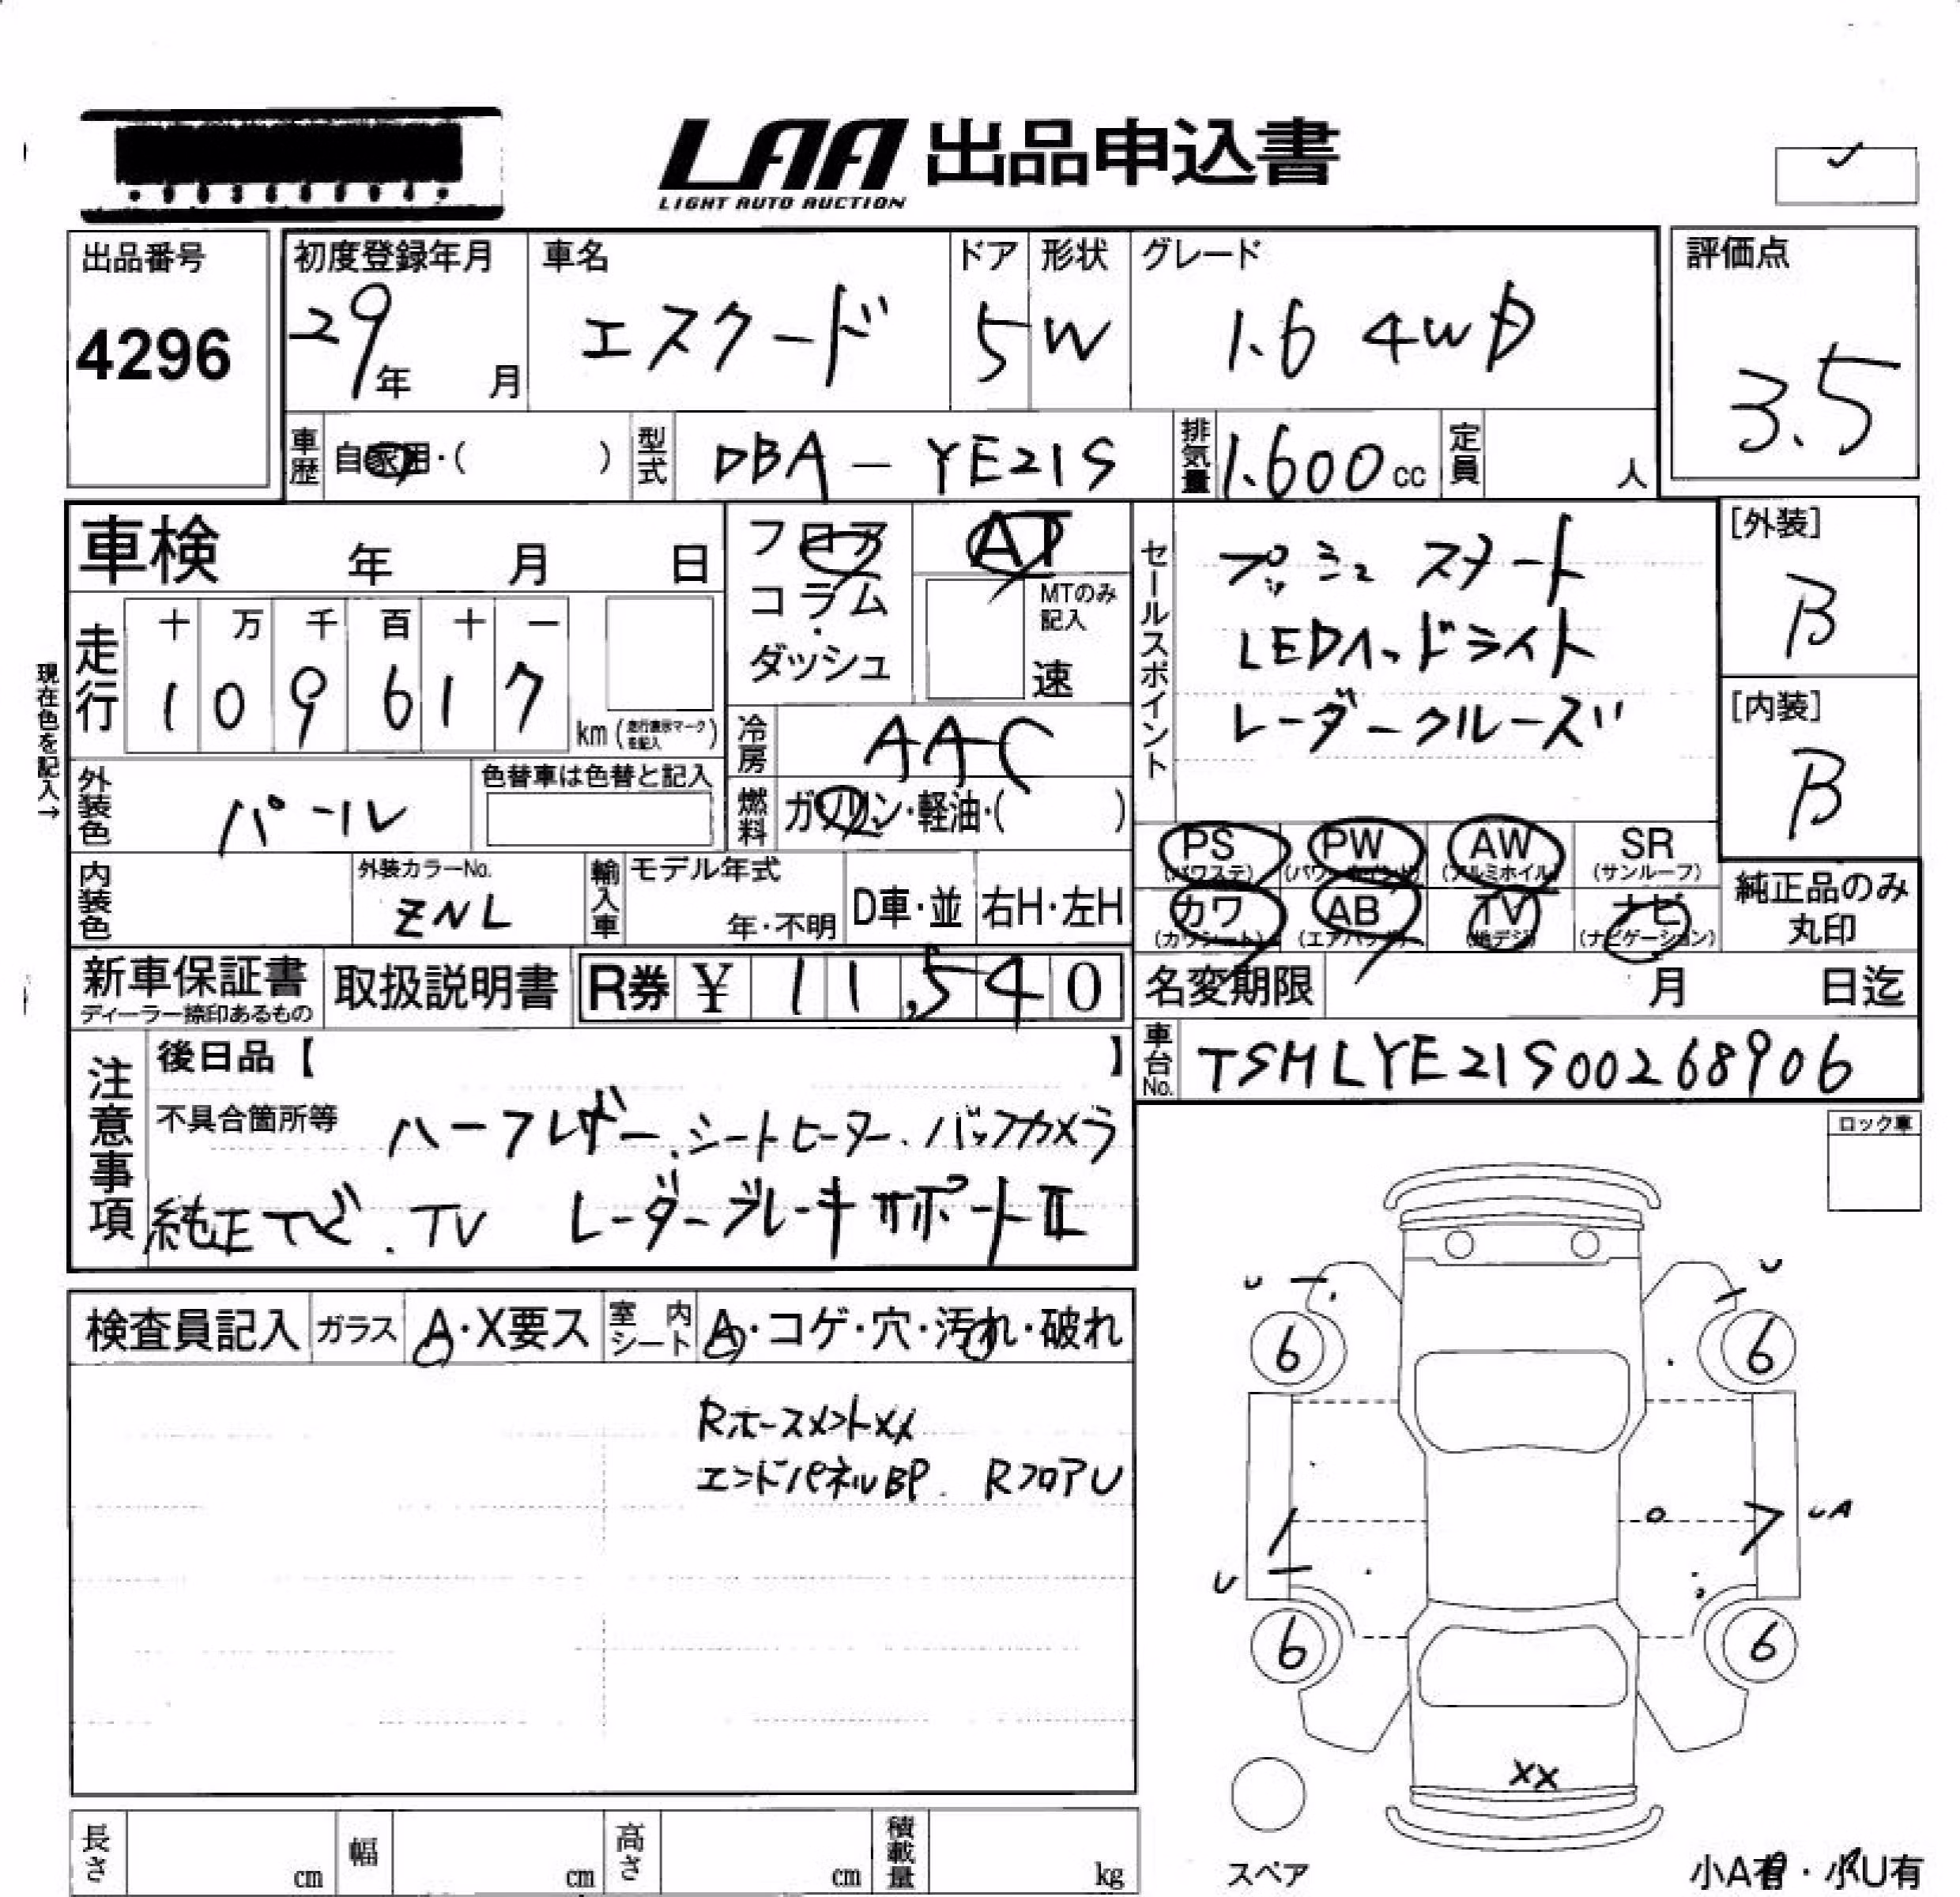 LAA 出品申込書
LIGHT AUTO AUCTION
出品番号
4296
初度登録年月
29年 月
車名
エスクード
ドア
5
形状
W
グレード
1.6 4WD
評価点
3.5
車歴 自家用・( )
型式 DBA-YE21S
排気量 1.600cc
定員 人
車検 年 月 日
フロア
コラム
・
ダッシュ
AT
MTのみ
記入
速
セールスポイント
プッシュスタート
LEDヘッドライト
レーダークルーズ
[外装]
B
[内装]
B
現在色を記入→
走行
十 万 千 百 十 一
1 0 9 6 1 7
km (走行表示マークを記入)
冷房 AAC
外装色 パール
色替車は色替と記入
燃料 ガソリン・軽油・( )
PS
(パワステ)
PW
(パワーウインド)
AW
(アルミホイル)
SR
(サンルーフ)
カワ
(カワシート)
AB
(エアバッグ)
TV
(地デジ)
ナビ
(ナビゲーション)
純正品のみ
丸印
内装色
外装カラーNo.
ZNL
輸入車
モデル年式
年・不明
D車・並
右H・左H
新車保証書
ディーラー捺印あるもの
取扱説明書
R券 ¥ 11,540
名変期限 月 日迄
車台No. TSMLYE21S00268906
注意事項
後日品【 】
不具合箇所等 ハーフレザー、シートヒーター、バックカメラ
純正ナビ、TV レーダーブレーキサポートII
ロック車
検査員記入
ガラス A・X要ス
室内シート A・コゲ・穴・汚れ・破れ
RホースメントXX
エンドパネルBP. RフロアU
U
U
6
6
UA
U
6
6
XX
スペア
小A有・小U有
長さ cm
幅 cm
高さ cm
積載量 kg